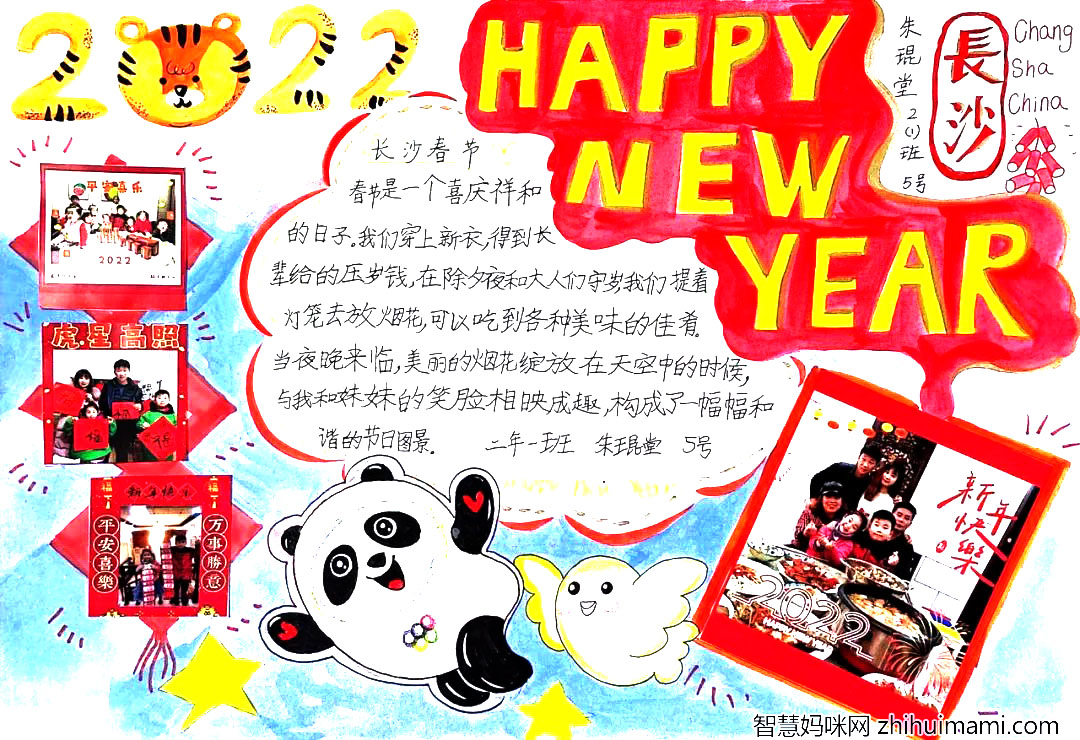 2022
HAPPY
NEW
YEAR
朱琨堂 2(1)班 5号
長沙
Chang
Sha
China
长沙春节
春节是一个喜庆祥和
的日子.我们穿上新衣,得到长
辈给的压岁钱,在除夕夜和大人们守岁,我们提着
灯笼去放烟花,可以吃到各种美味的佳肴.
当夜晚来临,美丽的烟花绽放在天空中的时候,
与我和妹妹的笑脸相映成趣,构成了一幅幅和
谐的节日图景. 二年一班 朱琨堂 5号
平安喜乐
2022
虎星高照
福
新年快乐
平安喜樂
万事勝意
新年快樂
2022
智慧妈咪网 zhihuimami.com